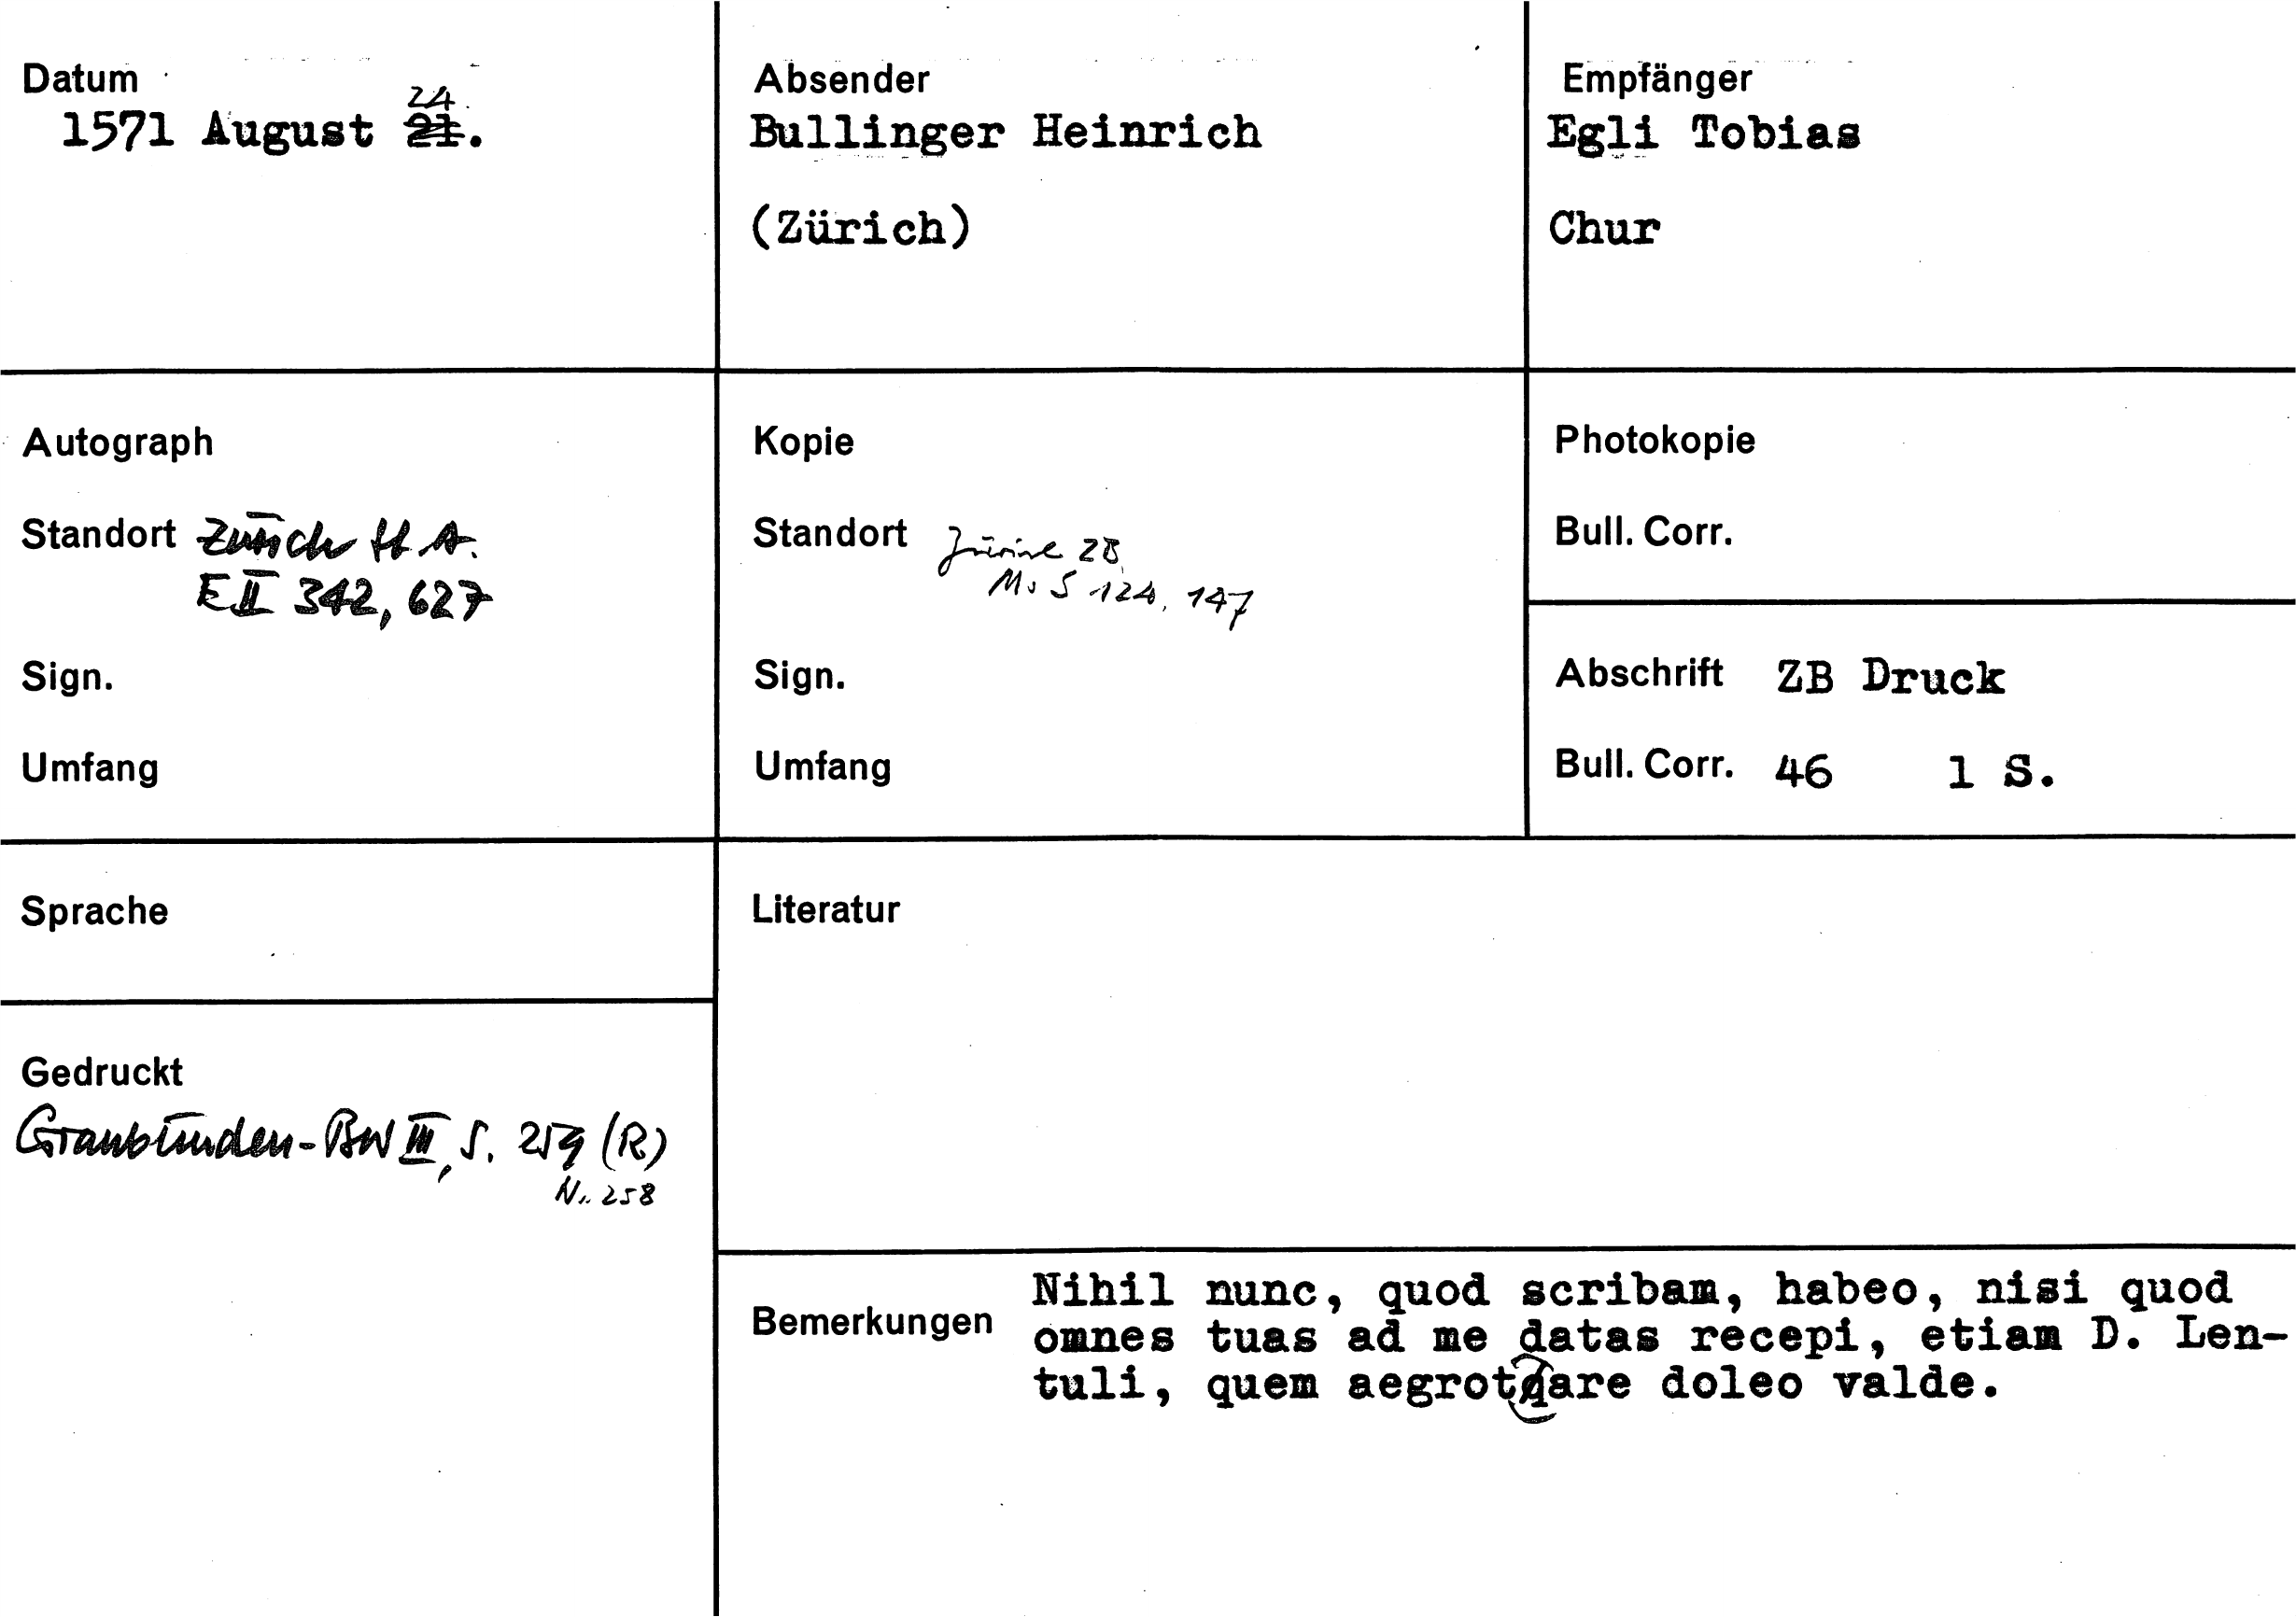 Datum
24.
1571 August 21.
Absender
Bullinger Heinrich
(Zürich)
Empfänger
Egli Tobias
Chur
Autograph
Standort Zürich StA.
E II 342, 627
Sign.
Umfang
Kopie
Standort Zürich ZB
Ms S 124, 147
Sign.
Umfang
Photokopie
Bull. Corr.
Abschrift ZB Druck
Bull. Corr. 46 1 S.
Sprache
Literatur
Gedruckt
Graubünden-BW III, S. 259 (R)
Nr. 258
Bemerkungen
Nihil nunc, quod scribam, habeo, nisi quod
omnes tuas ad me datas recepi, etiam D. Len-
tuli, quem aegrotare doleo valde.